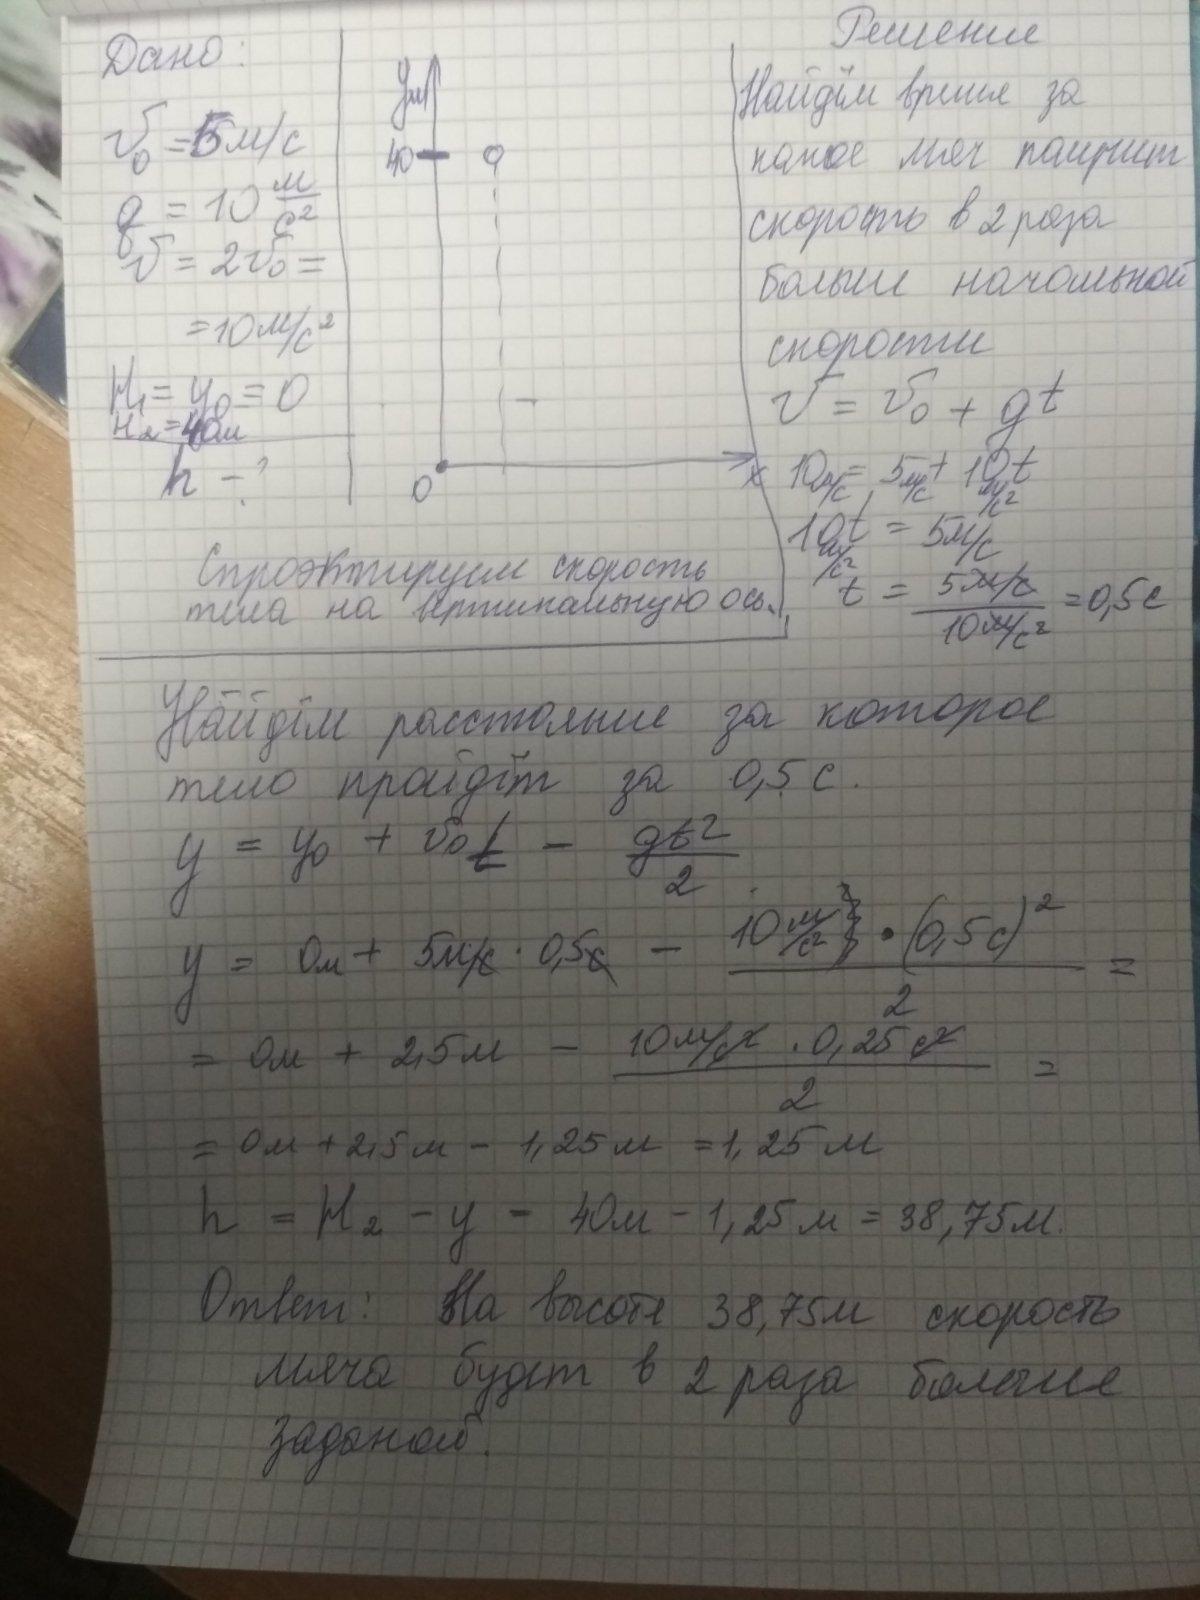 Дано:
V₀ = 5 м/с
g = 10 м/с²
V = 2V₀ =
= 10 м/с²
H₁ = y₀ = 0
H₂ = 40м
h - ?
y,м
40
0
x
Спроэктируем скорость
тела на вертикальную ось.
Решение
Найдём время за
какое мяч
скорость в 2 раза
больше начальной
скорости
V = V₀ + gt
10м/с = 5м/с + 10м/с² t
10м/с² t = 5м/с
t = 5м/с / 10м/с² = 0,5с
Найдём расстояние за которое
тело пройдёт за 0,5 с.
y = y₀ + V₀t - gt²/2
y = 0м + 5м/с · 0,5с - 10м/с² · (0,5с)²/2 =
= 0м + 2,5м - 10м/с² · 0,25с²/2 =
= 0м + 2,5м - 1,25м = 1,25м
h = H₂ - y = 40м - 1,25м = 38,75м.
Ответ: На высоте 38,75м скорость
мяча будет в 2 раза больше
заданой.